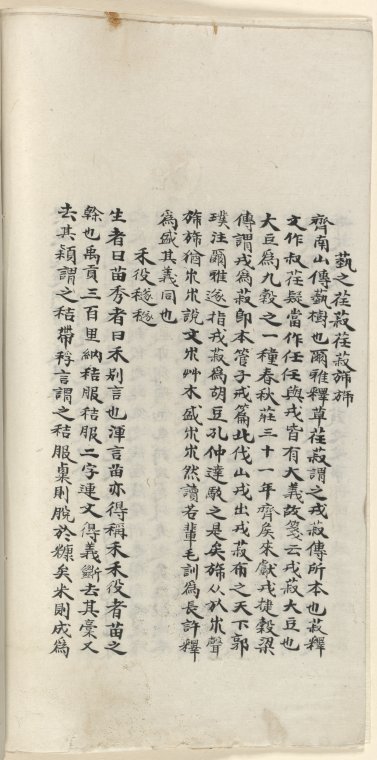 蓺之荏菽荏菽斾斾
齊南山傳蓺樹也爾雅釋草荏菽謂之戎菽傳所本也菽釋
文作叔荏疑當作任任與戎皆有大義故箋云戎菽大豆也
大豆為九穀之一種春秋莊三十一年齊矦來獻戎捷穀梁
傳謂戎為菽卽本管子戒篇北伐山戎出戎菽布之天下郭
璞注爾雅遂指戎菽為胡豆孔仲達駮之是矣斾从巿聲
斾斾猶巿巿說文巿艸木盛巿巿然讀若輩毛訓為長許釋
為盛其義同也
禾役穟穟
生者曰苗秀者曰禾别言也渾言苗亦得稱禾禾役者苗之
榦也禹貢三百里納秸服秸服二字連文得義斷去其稾又
去其穎謂之秸帶稃言謂之秸服稾則脫於糠矣米則成為